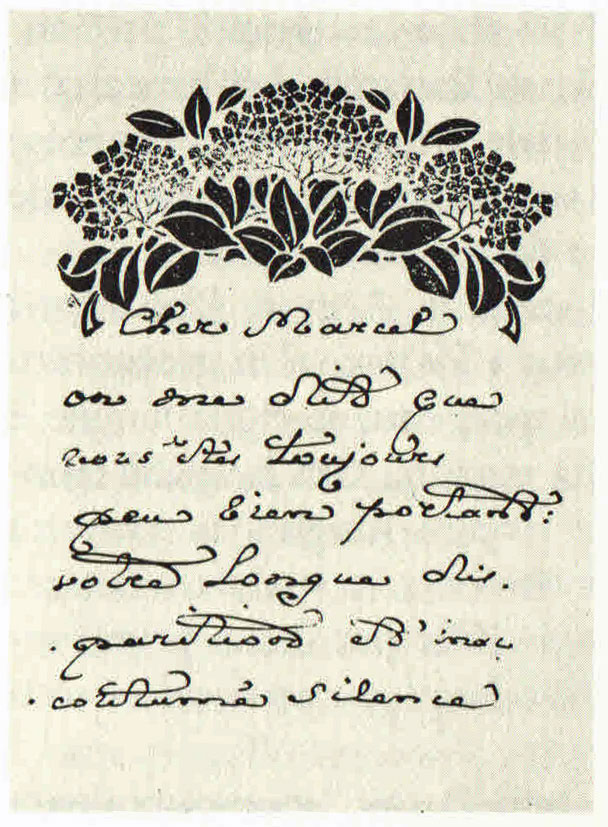 Cher Marcel
on me dit que
vous êtes toujours
peu bien portant:
votre longue dis.
. parition et inac
. coutumé silence